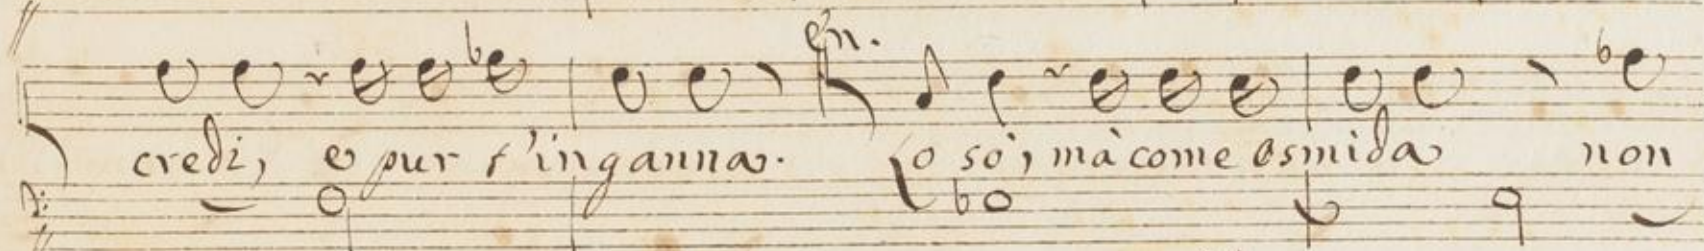 en.
credi, e pur t'inganna. Lo sò, mà come Osmida non